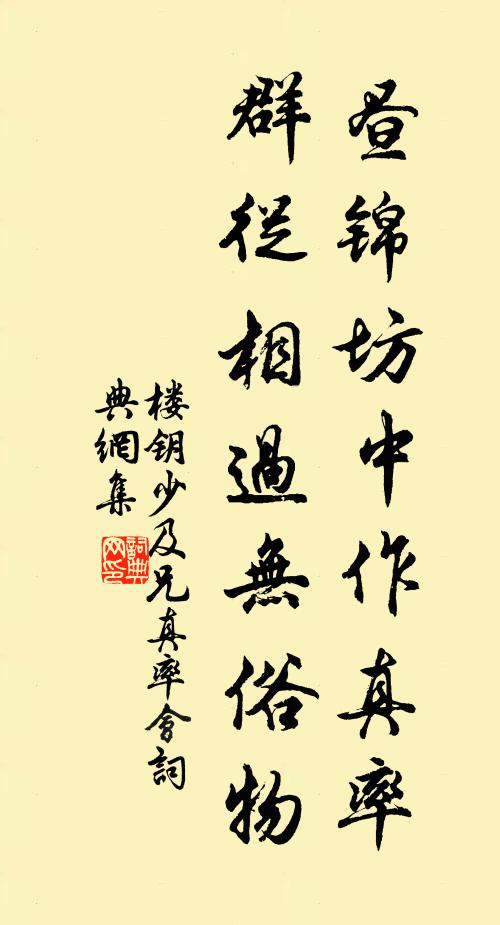 昼锦坊中作真率
群從相過無俗物
楼钥少及兄真率會詞
典網集
詞典
网印